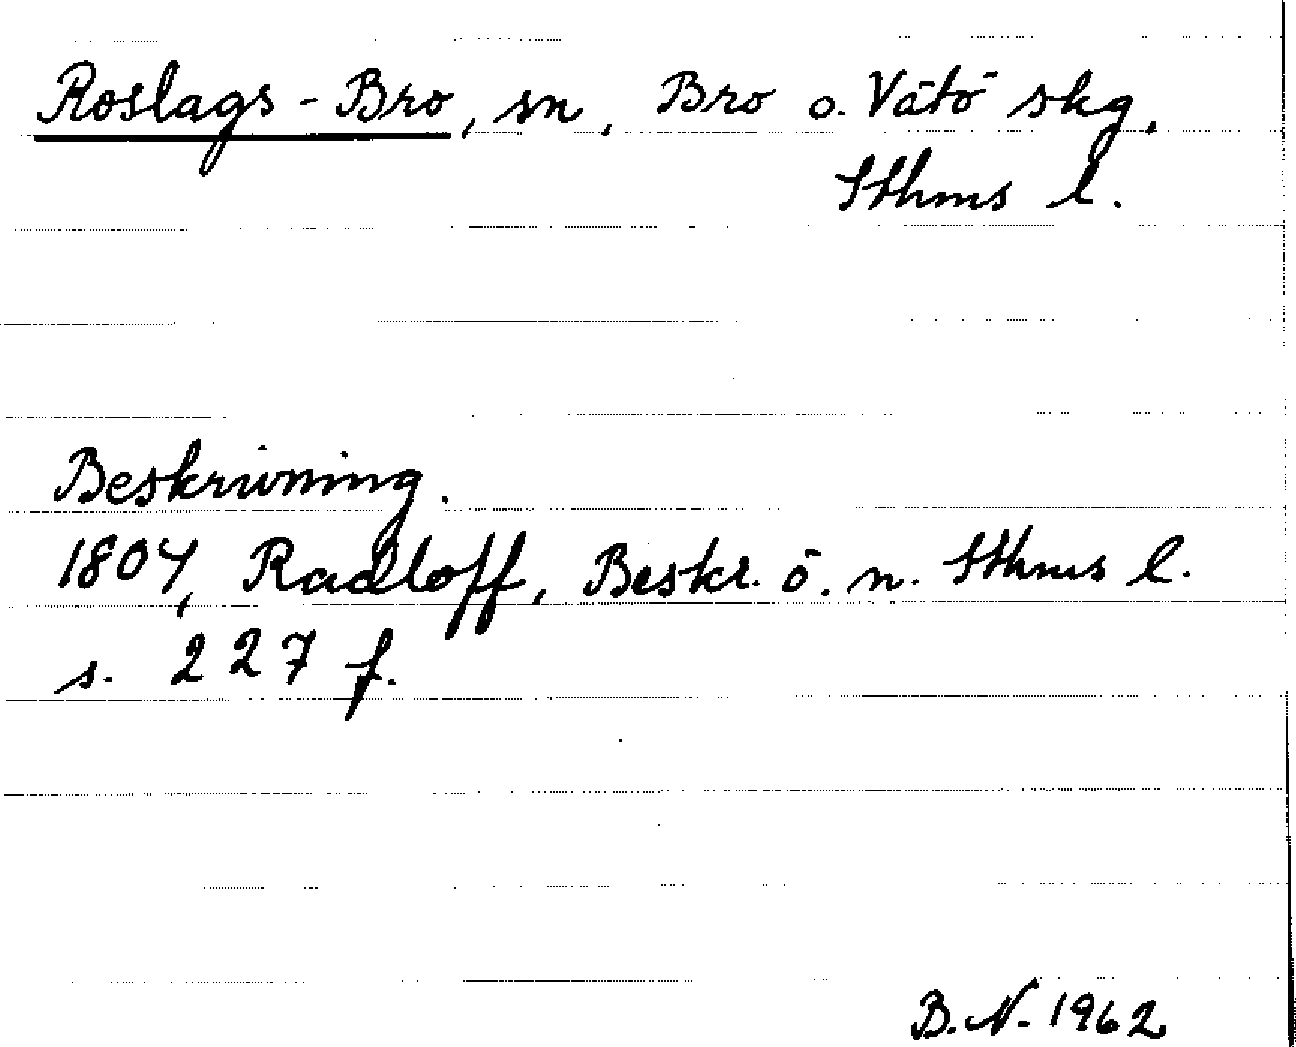 Roslags-Bro, sn, Bro o. Vätö skg,
Sthms l.
Beskrivning.
1804, Radloff, Beskr. ö. n. Sthms l.
s. 227 f.
B.N. 1962